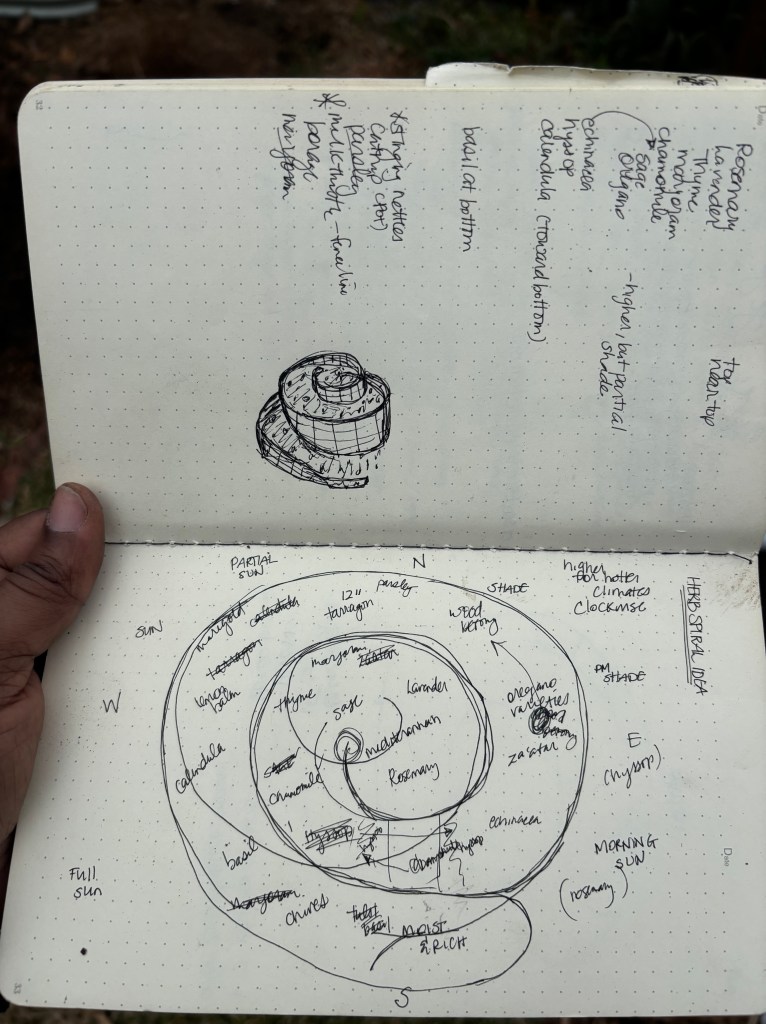 Rosemary
Lavender
Thyme
marjoram
chamomile
sage
oregano
top
near top
- higher, but partial
shade
echinacea
hyssop
calendula (toward bottom)
basil at bottom
* stinging nettles
catnip (pot)
parsley
* milk thistle - fence line
borage
HERB SPIRAL IDEA
higher
for hotter
climates
clockwise
PARTIAL
SUN
N
SHADE
SUN
PM
SHADE
W
E
(hyssop)
MORNING
SUN
(rosemary)
FULL
SUN
S
marigold
calendula
12"
tarragon
parsley
wood
betony
tarragon
lemon
balm
marjoram
zaatar
thyme
sage
Lavender
oregano
varieties
betony
za'atar
mediterranean
Rosemary
calendula
chamomile
hyssop
echinacea
basil
marjoram
chives
basil
MOIST
& RICH